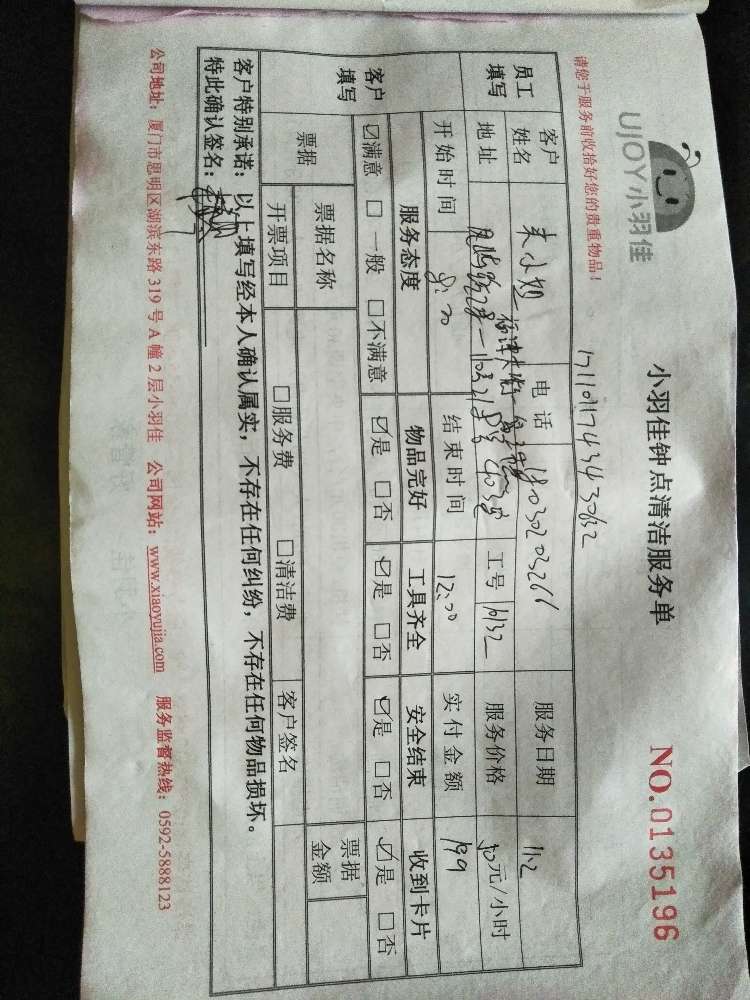 UJOY小羽佳
小羽佳钟点清洁服务单
NO.0135196
请您于服务前收拾好您的贵重物品！
1711011743430632
员工填写
客户姓名 朱小姐 电话 18030203266 服务日期 11.2
地址 工号 16132 服务价格 50元/小时
开始时间 8:30 结束时间 12:00 实付金额 199
客户填写
服务态度 物品完好 工具齐全 安全结束 收到卡片
☑满意 □一般 □不满意 ☑是 □否 ☑是 □否 ☑是 □否 ☑是 □否
票据 票据名称 票据金额
开票项目 □服务费 □清洁费 客户签名
客户特别承诺：以上填写经本人确认属实，不存在任何纠纷，不存在任何物品损坏。
特此确认签名：
公司地址：厦门市思明区湖滨东路319号A幢2层小羽佳 公司网站：www.xiaoyujia.com 服务监督热线：0592-5888123